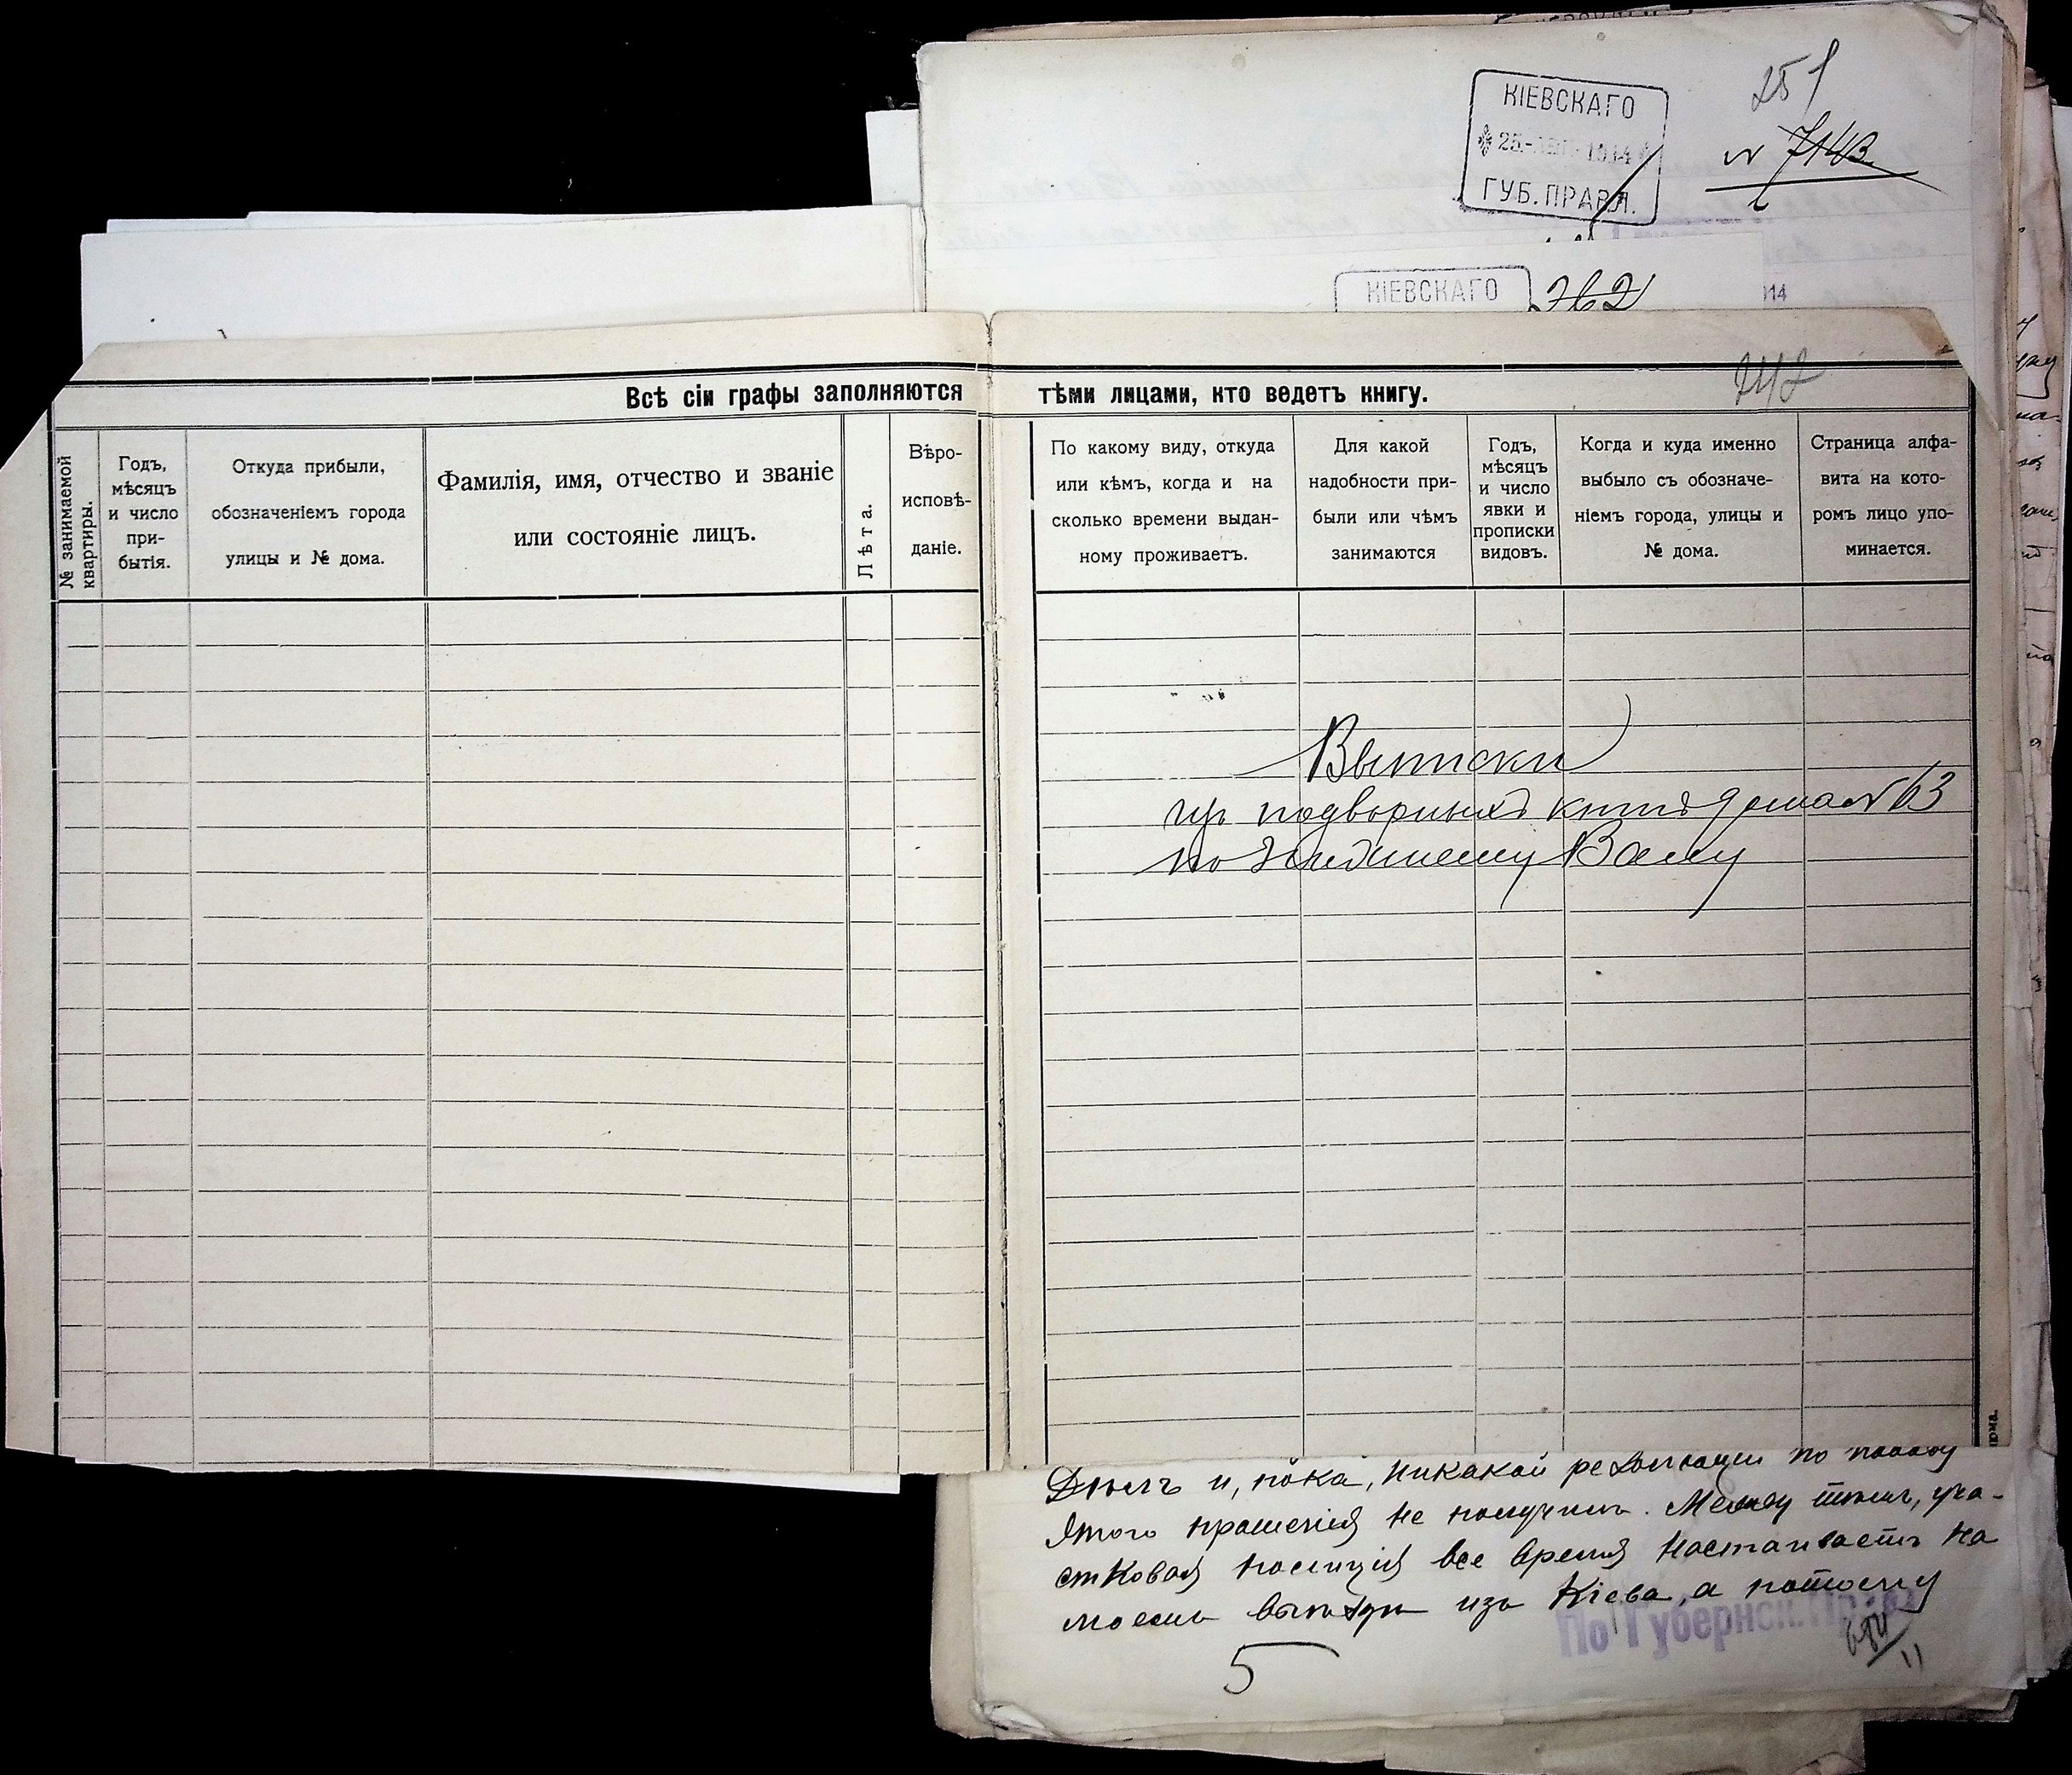 КІЕВСКАГО
25 1914
ГУБ. ПРАВЛ.
251
№ 7143
КІЕВСКАГО
762
914
Всѣ сіи графы заполняются тѣми лицами, кто ведетъ книгу.
№ занимаемой квартиры.
Годъ,
мѣсяцъ
и число
при-
бытія.
Откуда прибыли,
обозначеніемъ города
улицы и № дома.
Фамилія, имя, отчество и званіе
или состояніе лицъ.
Лѣта.
Вѣро-
исповѣ-
даніе.
По какому виду, откуда
или кѣмъ, когда и на
сколько времени выдан-
ному проживаетъ.
Для какой
надобности при-
были или чѣмъ
занимаются
Годъ,
мѣсяцъ
и число
явки и
прописки
видовъ.
Когда и куда именно
выбыло съ обозначе-
ніемъ города, улицы и
№ дома.
Страница алфа-
вита на кото-
ромъ лицо упо-
минается.
Выписки
изъ подворныхъ книгъ дома № 63
по Ваму
и, пока, никакой резолюціи по поводу
этого прошенія не получилъ. Между тѣмъ, уча-
стковая полиція все время настаиваетъ на
моемъ выѣздѣ изъ Кіева, а потому
По Губернск.
5